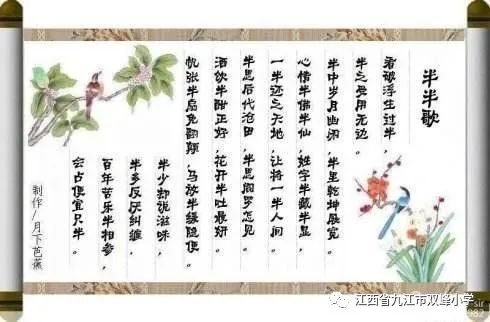 半半歌
看破浮生过半,
半之受用无边。
半中岁月幽闲,半里乾坤展宽。
心情半佛半仙,姓字半藏半显,
一半还之天地,让将一半人间。
半思后代沧田,半思阎罗怎见。
酒饮半酣正好,花开半吐最妍。
帆张半扇免翻颠,马放半缰稳便。
半少却饶滋味,
半多反厌纠缠。
百年苦乐半相参,
会占便宜只半。
制作/月下芭蕉
江西省九江市双峰小学
sir
982